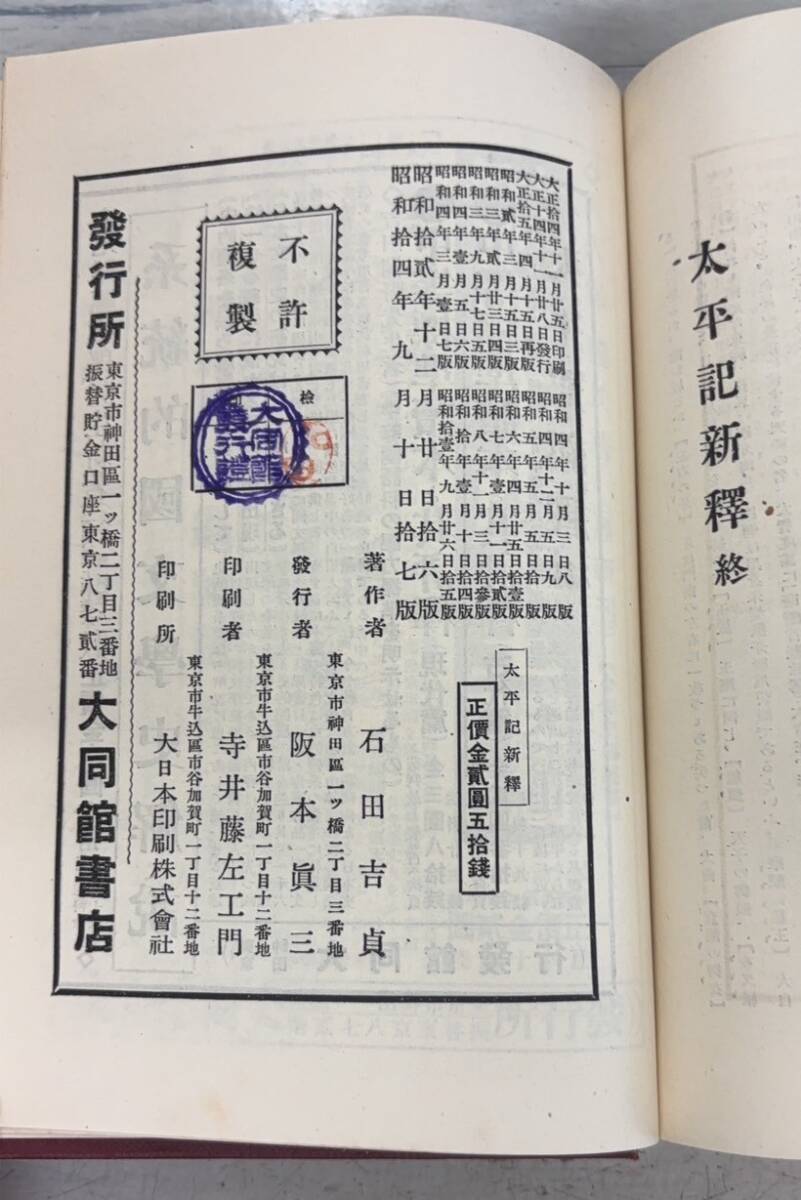 太平記新釋終
大正拾四年十一月廿五日印刷
大正十四年十一月廿八日發行
大正拾五年四月十五日再版
昭和貳年三月十五日三版
昭和三年貳月廿三日四版
昭和三年九月十七日五版
昭和四年壹月五日六版
昭和四年三月壹日七版
昭和四年十月三日八版
昭和四年十二月五日九版
昭和五年五月五日拾版
昭和六年四月廿五日拾壹版
昭和七年壹月十一日拾貳版
昭和八年十一月三日拾參版
昭和拾年壹月十日拾四版
昭和拾壹年九月廿六日拾五版
昭和拾貳年十二月廿日拾六版
昭和拾四年九月十日拾七版
太平記新釋
正價金貳圓五拾錢
不許
複製
檢
大同館
發行證
著作者 石田吉貞
東京市神田區一ッ橋二丁目三番地
發行者 阪本眞三
東京市牛込區市谷加賀町一丁目十二番地
印刷者 寺井藤左工門
東京市牛込區市谷加賀町一丁目十二番地
印刷所 大日本印刷株式會社
發行所
東京市神田區一ッ橋二丁目三番地
振替貯金口座東京八七貳番
大同館書店